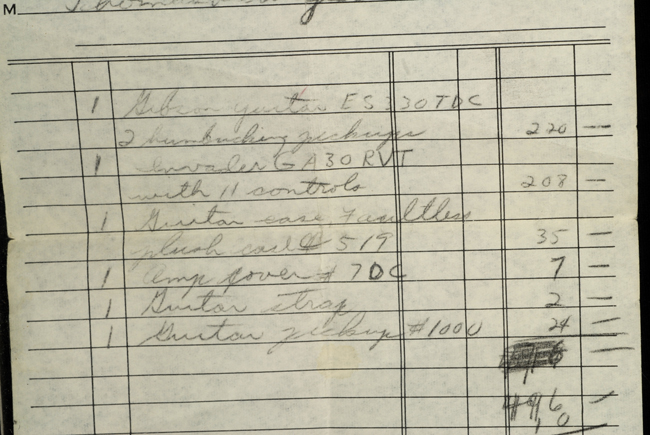 M
1 Gibson guitar ES 330 TDC
2 humbucking pickups 220 —
1 Invader GA30 RVT
with 11 controls 208 —
1 Guitar case Faultless
plush case # 519 35 —
1 Amp cover # 7DC 7 —
1 Guitar strap 2 —
1 Guitar pickup #1000 24 —
496